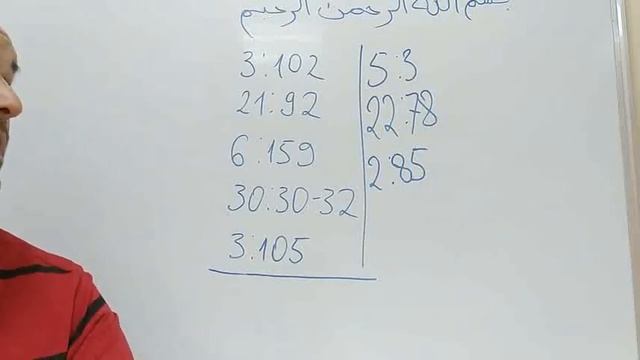 بسم الله الرحمن الرحيم
3:102
21:92
6:159
30:30-32
3:105
5:3
22:78
2:85